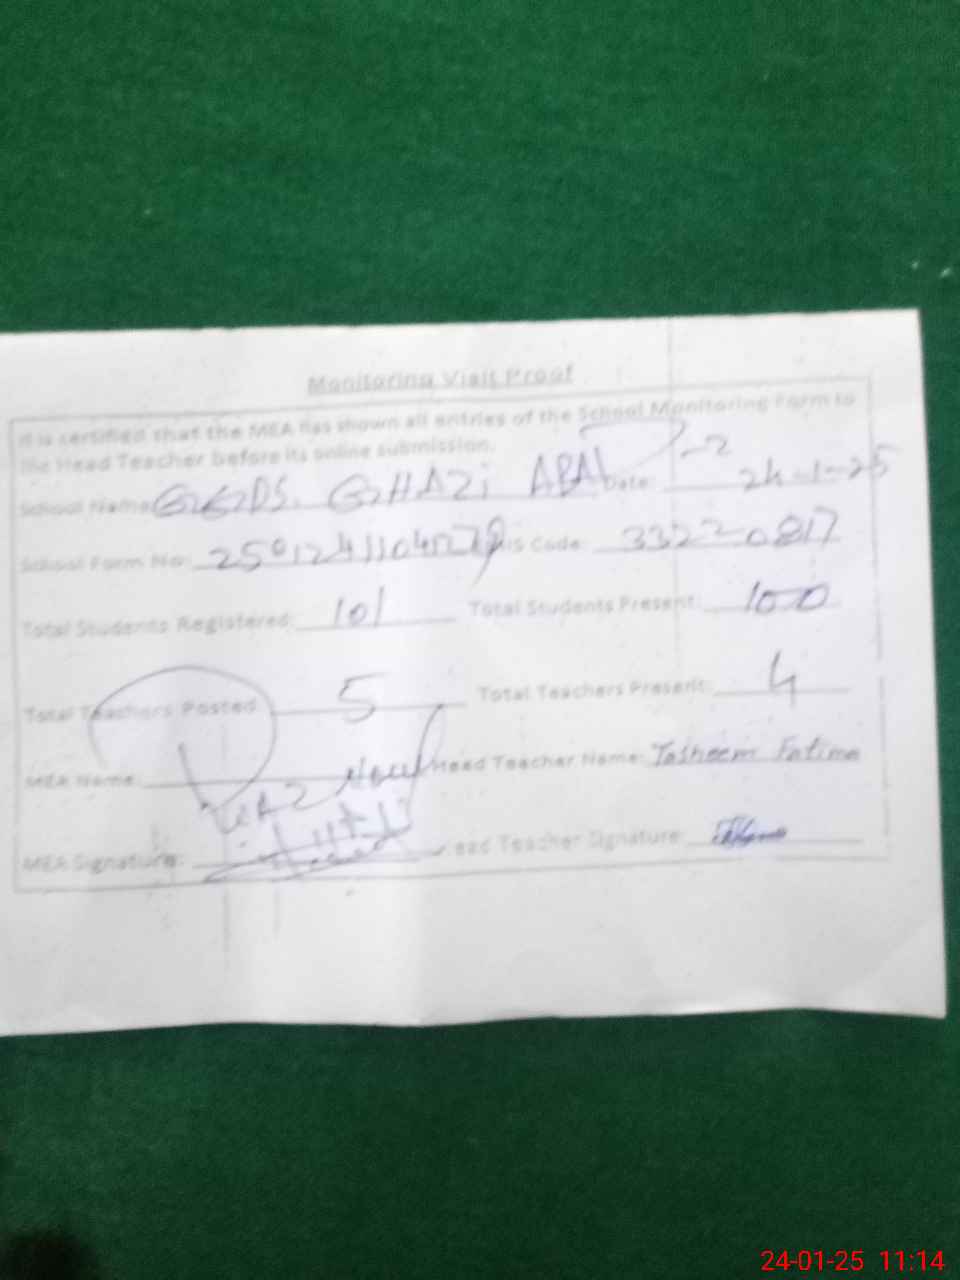 Monitoring Visit Proof
It is certified that the MEA has shown all entries of the School Monitoring Form to
the Head Teacher before its online submission.
School Name: GGPS. GHAZI ABAD -2 Date: 24-1-25
School Form No: Code: 33220817
Total Students Registered: 101 Total Students Present: 100
Total Teachers Posted: 5 Total Teachers Present: 4
MEA Name: Head Teacher Name: Tasheem Fatima
MEA Signature: Head Teacher Signature:
24-01-25 11:14